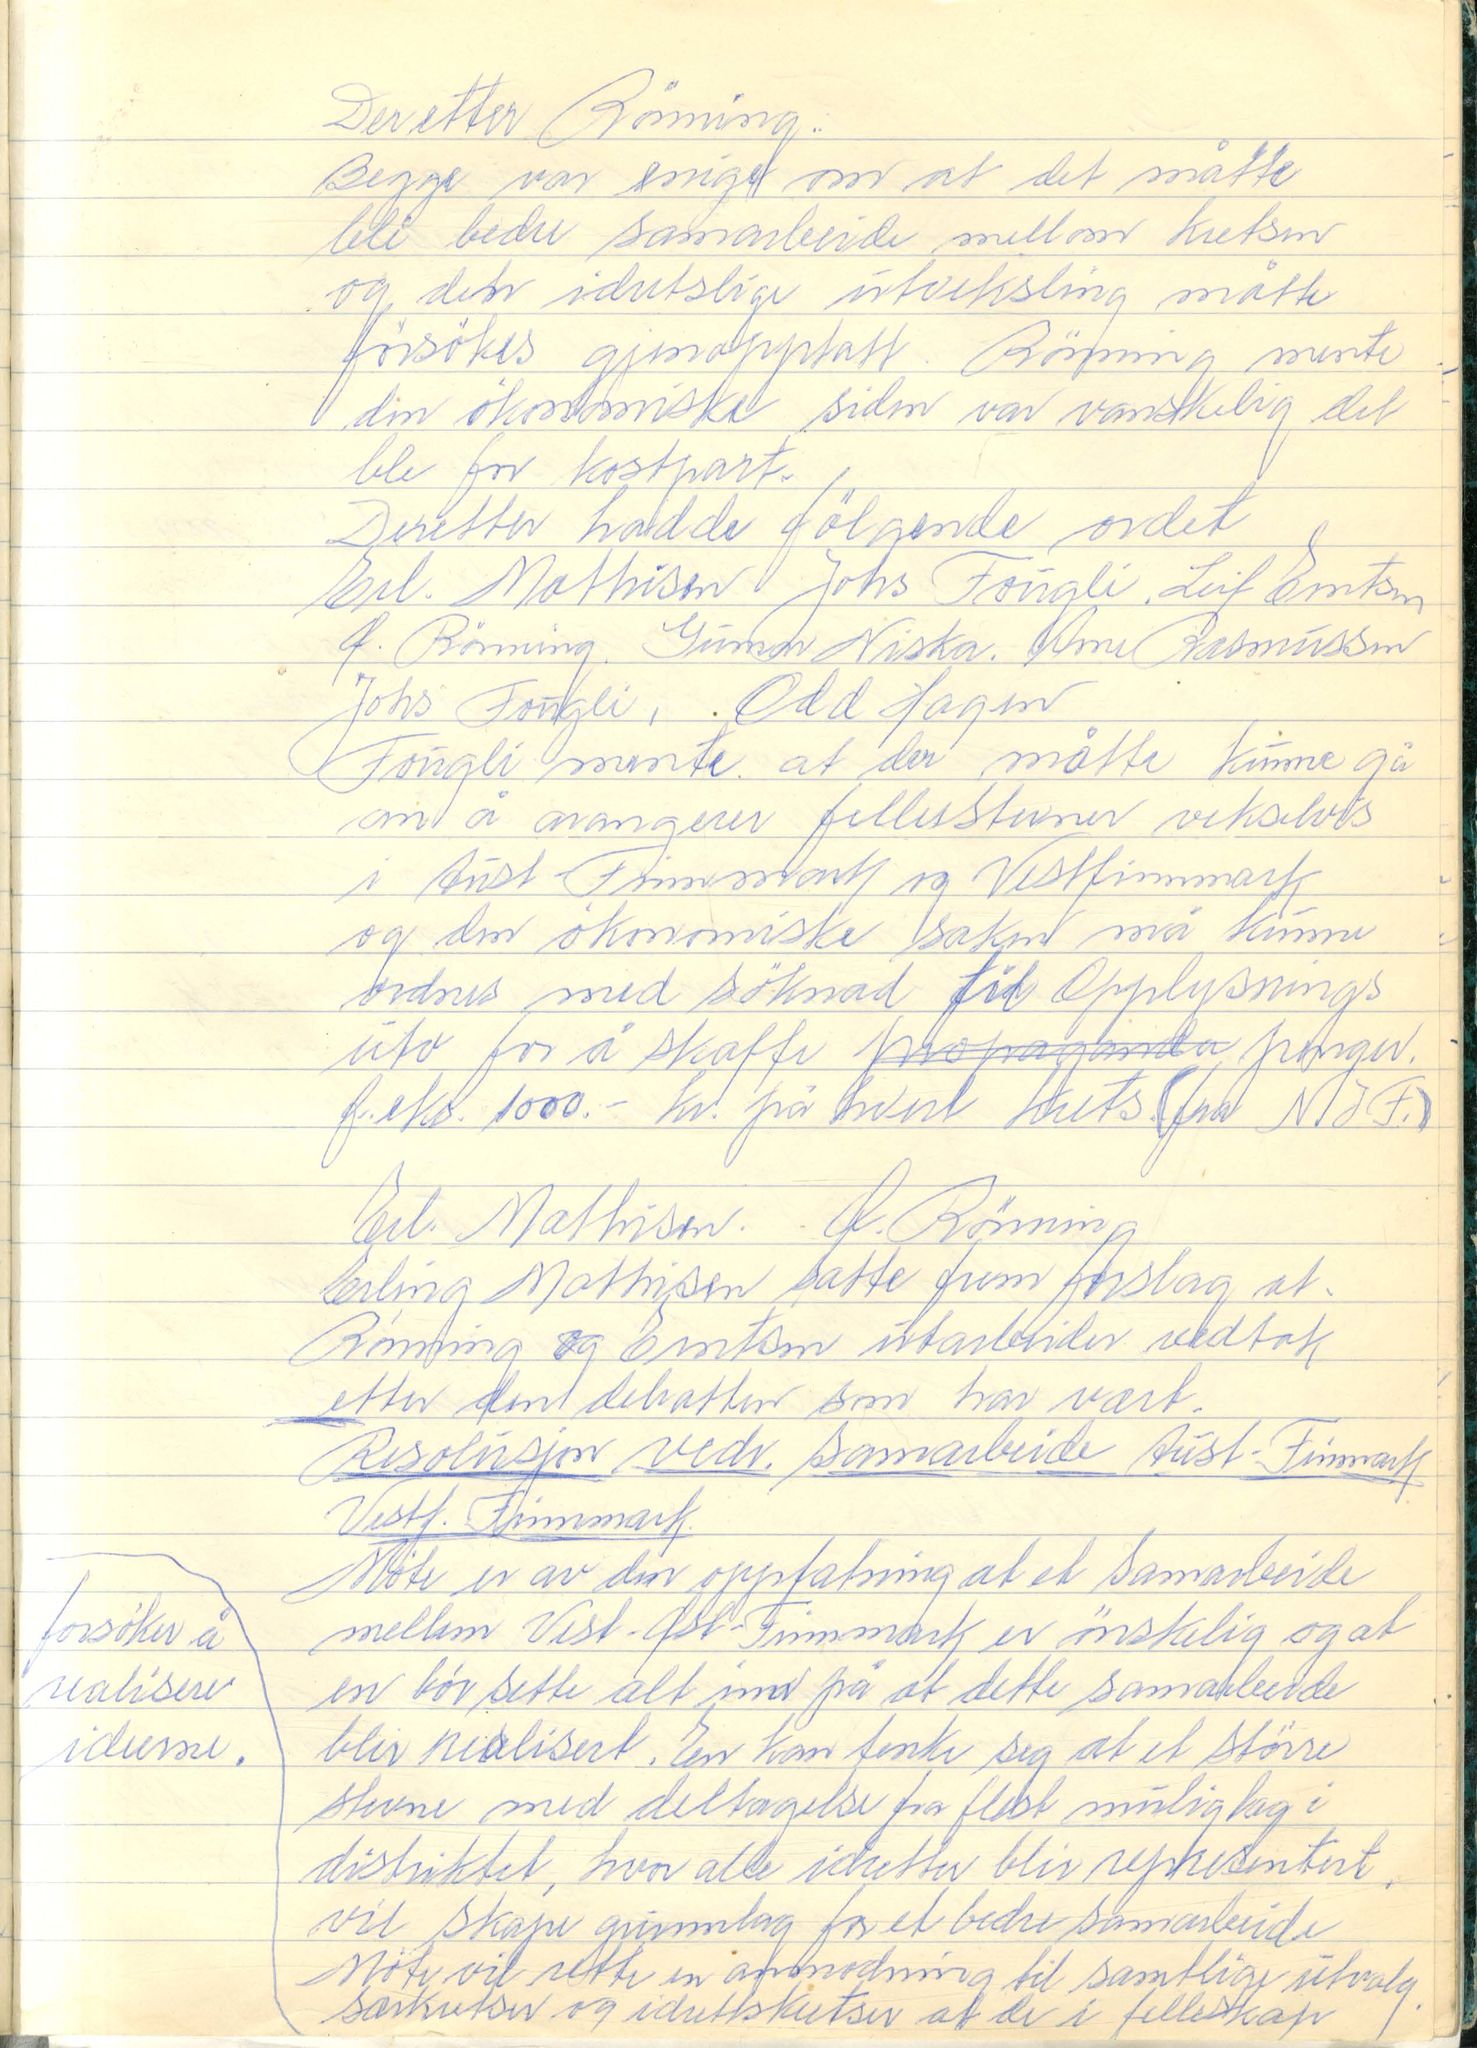 Deretter Rönning.
Begge var enige om at det måtte
bli bedre samarbeide mellom kretsen
og den idretslige utveksling måtte
försökes gjenopptatt. Rönning mente
den ökonomiske siden var vanskelig det
ble for kostpart.
Deretter hadde fölgende ordet
Erl. Mathisen Johs Fougli. Leif Erntsen
A. Rönning. Gunnar Niska. Arne Rasmussen
Johs Fougli, Odd Hagen
Fougli mente at der måtte kunne gå
an å arangerer fellesstevner vekselvis
i Aust-Finnmark og Vestfinnmark
og den ökonomiske saken må kunne
ordnes med söknad til Opplysnings
utv for å skaffe propaganda penger.
f.eks. 1000.- kr. på hverl krets. (fra N I F.)
Erl. Mathisen. A. Rönning
Erling Mathisen satte frem forslag at.
Rönning og Erntsen utarbeider vedtak
etter den debatten som har vært.
Resolusjon vedr. samarbeide Aust-Finnmark
Vestf. Finnmark.
Möte er av den oppfatning at et samarbeide
mellem Vest-Öst-Finnmark er önskelig og at
en bör sette alt inn på at dette samarbeide
blir realisert. En kan tenke seg at et större
stevne med deltagelse fra flest mulig lag i
distriktet, hvor alle idretter blir representert.
vil skape grunnlag for et bedre samarbeide
Möte vil rette en anmodning til samtlige utvalg.
særkretser og idrettskretser at de i fellesskap
forsöker å
realisere
ideerne.